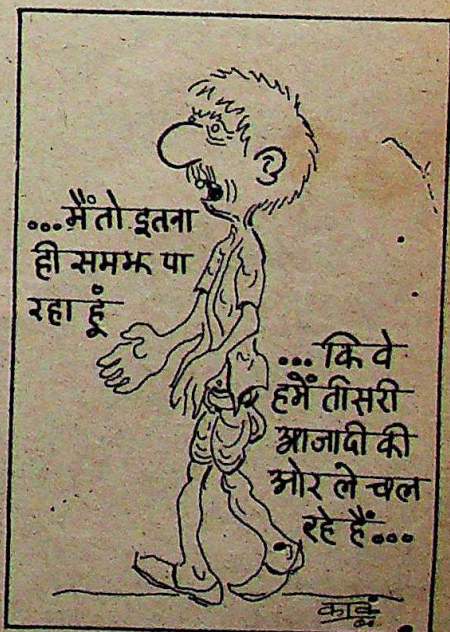 ...मैं तो इतना
ही समझ पा
रहा हूं
...कि वे
हमें तीसरी
आजादी की
ओर ले चल
रहे हैं...
काकं